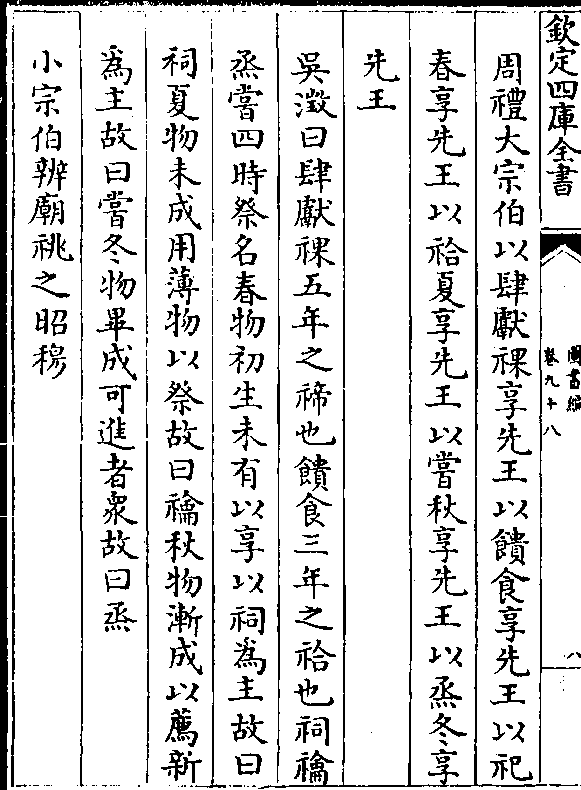 欽定四庫全書
圖書編
卷九十八
八
周禮大宗伯以肆獻祼享先王以饋食享先王以祀
春享先王以祫夏享先王以嘗秋享先王以烝冬享
先王
吳澂曰肆獻祼五年之禘也饋食三年之祫也祠禴
烝嘗四時祭名春物初生未有以享以祠為主故曰
祠夏物未成用薄物以祭故曰禴秋物漸成以薦新
為主故曰嘗冬物畢成可進者衆故曰烝
小宗伯辨廟祧之昭穆